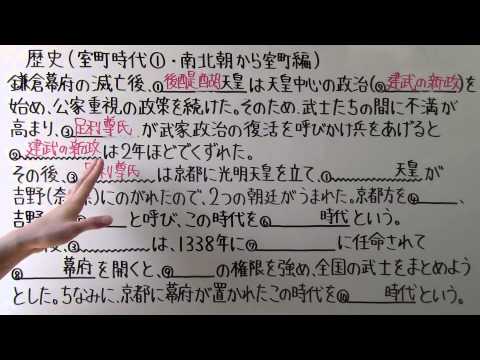 歴史(室町時代①・南北朝から室町編)
鎌倉幕府の滅亡後、①後醍醐天皇は天皇中心の政治(②建武の新政)を
始め、公家重視の政策を続けた。そのため、武士たちの間に不満が
高まり、③足利尊氏が武家政治の復活を呼びかけ兵をあげると
②建武の新政は2年ほどでくずれた。
その後、③足利尊氏は京都に光明天皇を立て、①天皇が
吉野(奈県)にのがれたので、2つの朝廷がうまれた。京都方を④、
吉野 と呼び、この時代を⑥時代という。
は、1338年に⑦に任命されて
⑧幕府を開くと、⑨の権限を強め、全国の武士をまとめよう
とした。ちなみに、京都に幕府が置かれたこの時代を⑩時代という。